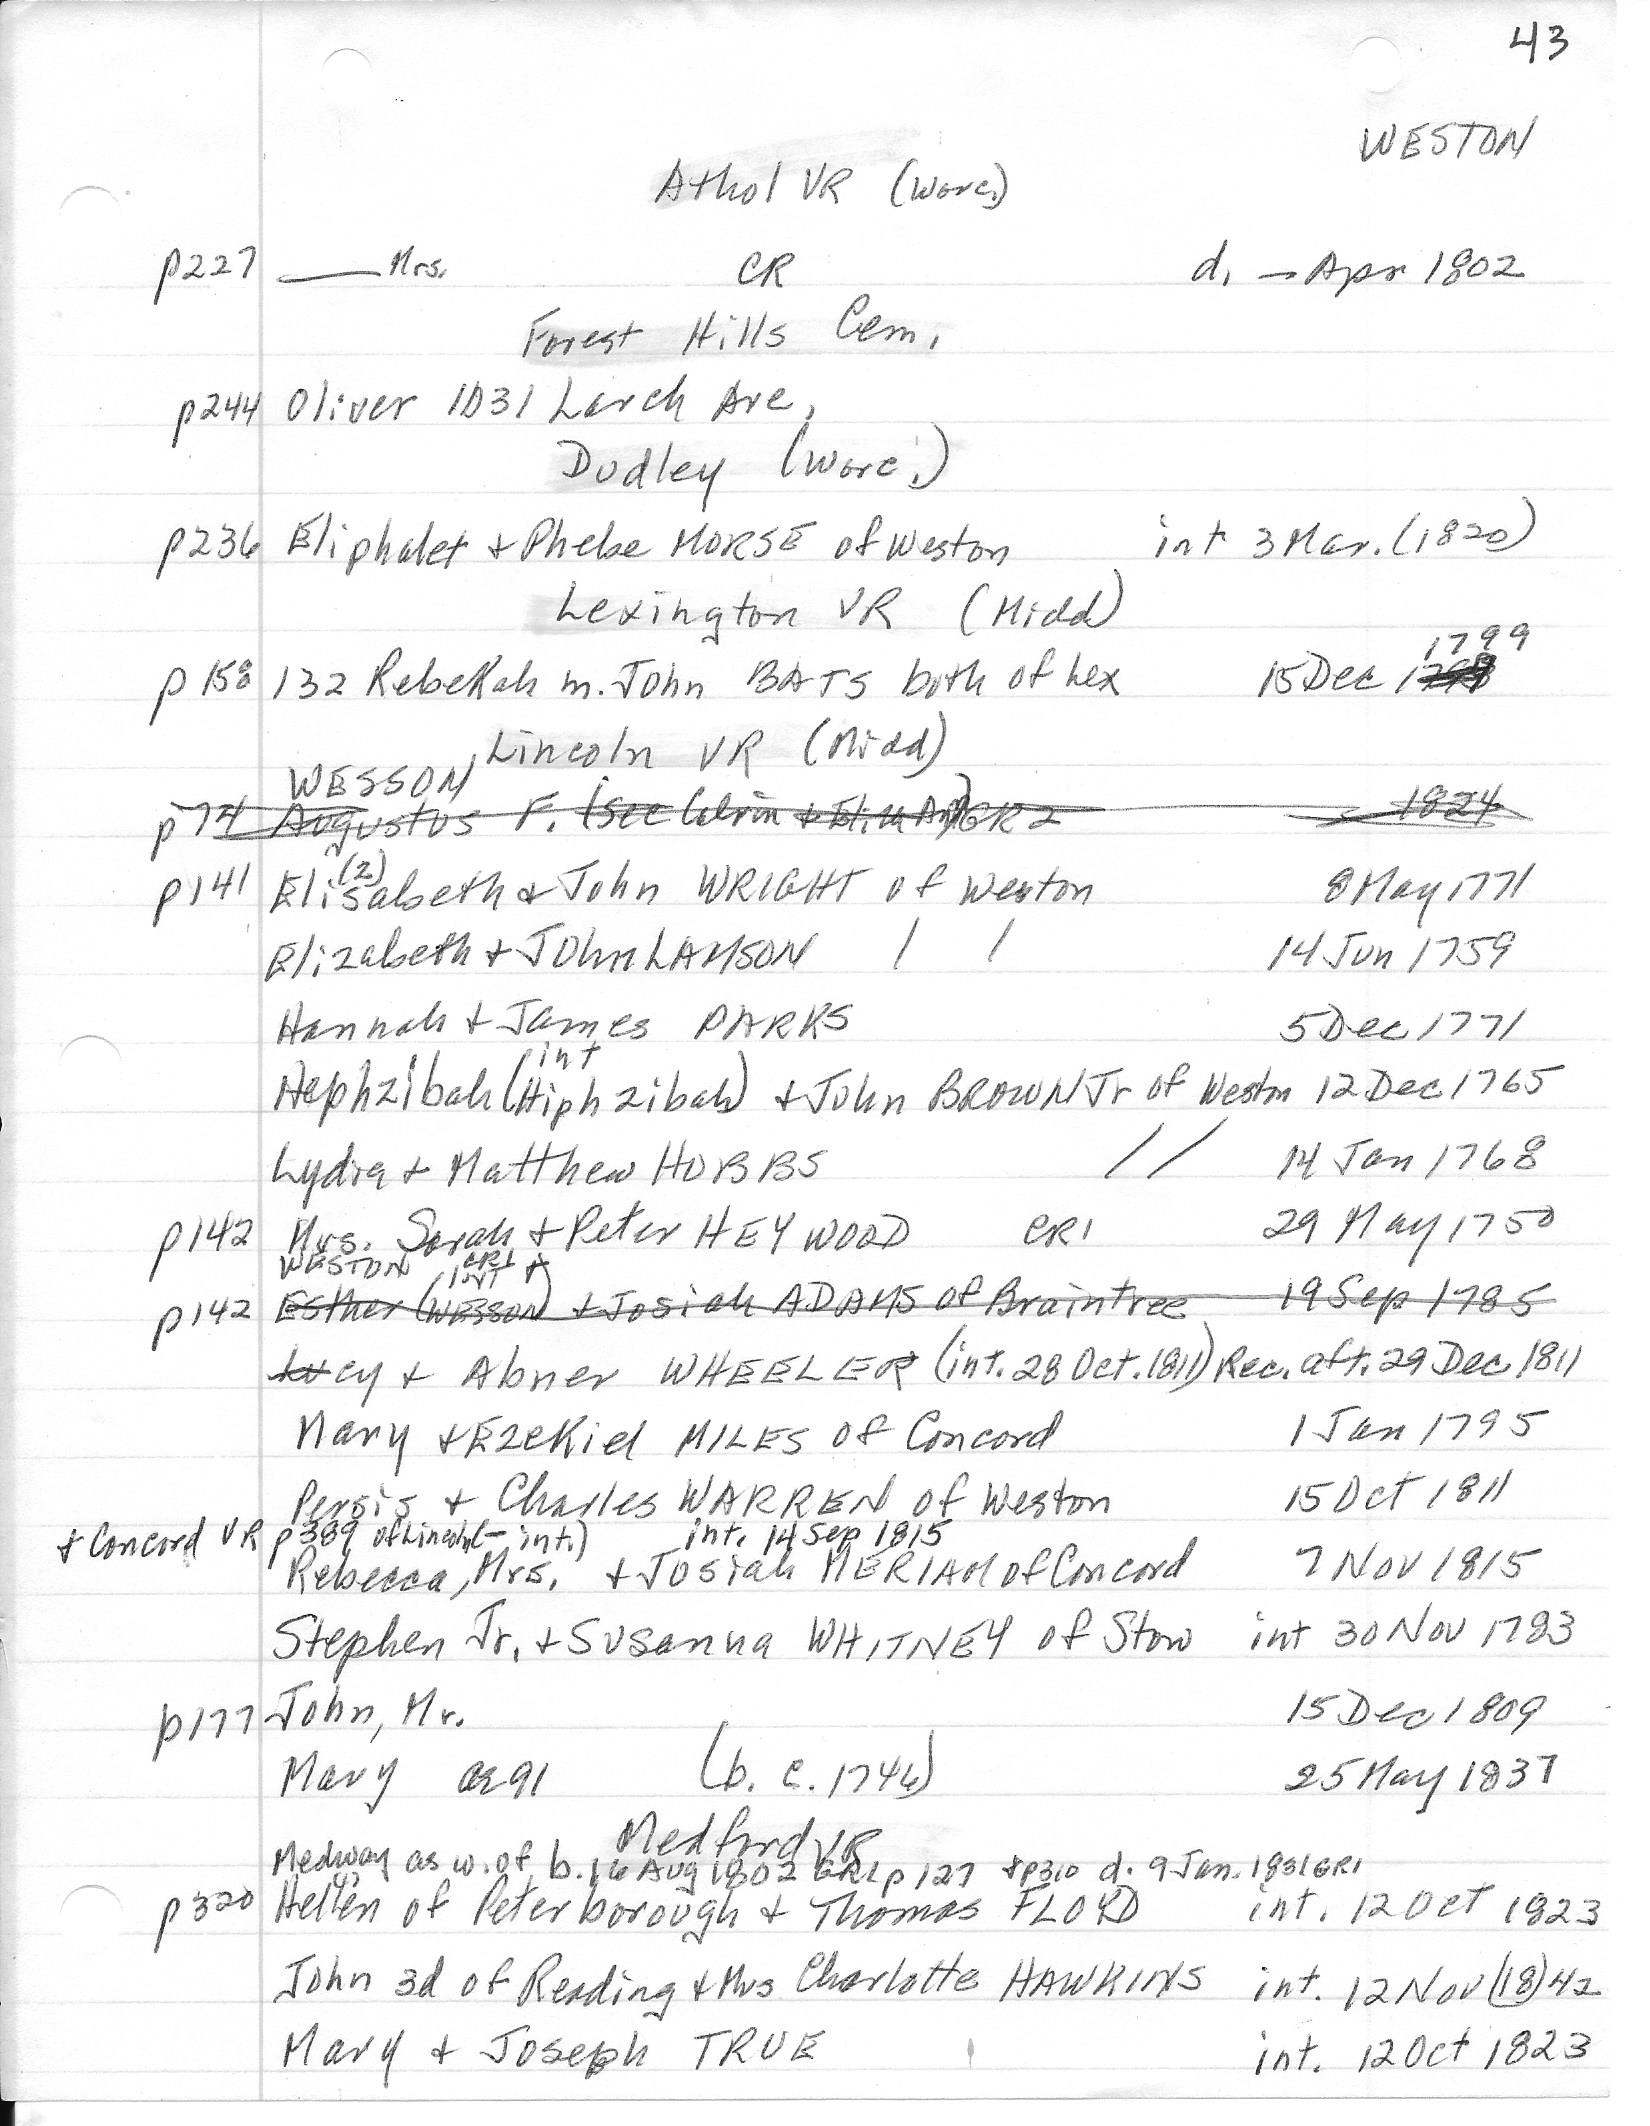 43
WESTON
Athol VR (Worc.)
p227 ___ Mrs. CR d. — Apr 1802
Forest Hills Cem.
p244 Oliver 1031 Larch Ave.
Dudley (Worc.)
p236 Eliphalet + Phebe MORSE of Weston int 3 Mar. (1820)
Lexington VR (Midd)
1799
p158 132 Rebekah m. John BATS both of Lex 15 Dec
Lincoln VR (Midd)
WESSON
p74 Augustus F. (See Calvin + Eliza An) GR2 1824
(2)
p141 Elisabeth + John WRIGHT of Weston 8 May 1771
Elizabeth + John LAMSON / / 14 Jun 1759
Hannah + James PARKS 5 Dec 1771
int
Hephzibah (Hiphzibah) + John BROWN Jr of Weston 12 Dec 1765
Lydia + Matthew HOBBS / / 14 Jan 1768
p142 Mrs. Sarah + Peter HEYWOOD CR1 29 May 1750
WESTON INT + CR1
p142 Esther (WESSON) + Josiah ADAMS of Braintree 19 Sep 1785
Lucy + Abner WHEELER (int. 28 Oct. 1811) Rec. aft. 29 Dec 1811
Mary + Ezekiel MILES of Concord 1 Jan 1795
Persis + Charles WARREN of Weston 15 Oct 1811
+ Concord VR p389 of Lincoln (— int.) int. 14 Sep 1815
Rebecca, Mrs. + Josiah MERIAM of Concord 7 Nov 1815
Stephen Jr. + Susanna WHITNEY of Stow int 30 Nov 1783
p177 John, Mr. 15 Dec 1809
Mary ae 91 (b. c. 1746) 25 May 1837
Medford VR
Medway as w. of, b. 16 Aug 1802 GR1 p127 + p310 d. 9 Jan. 1831 GR1
p320 Hellen of Peterborough + Thomas FLOYD int. 12 Oct 1823
John 3d of Reading + Mrs Charlotte HAWKINS int. 12 Nov (18)42
Mary + Joseph TRUE int. 12 Oct 1823